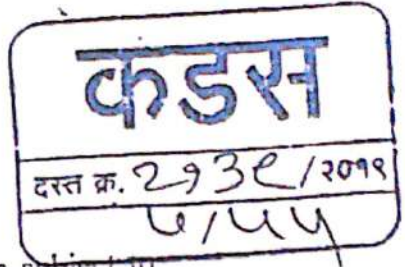 कडस
दस्त क्र. २१३९/२०१९
५/५५